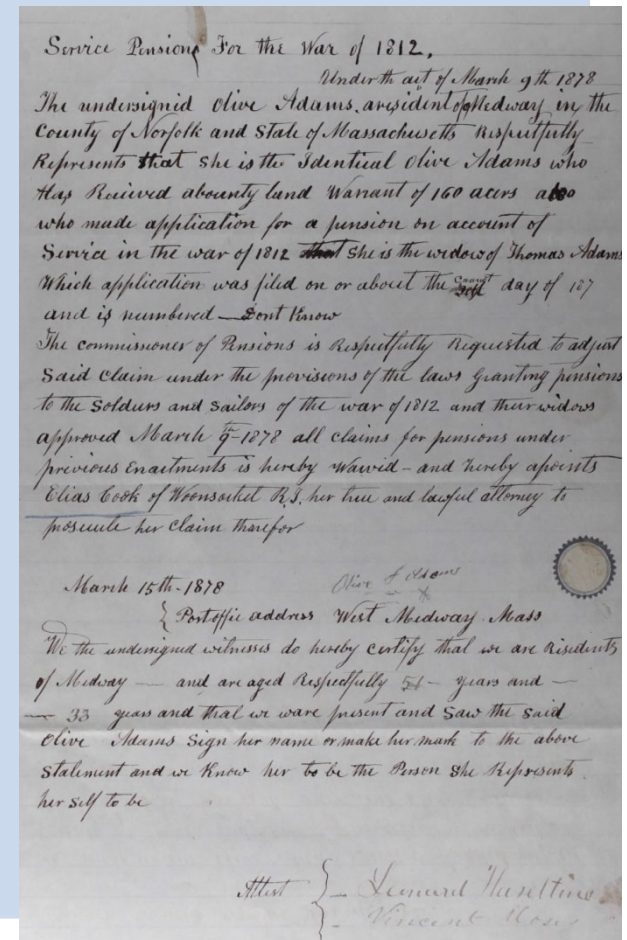 Service Pensions For the War of 1812.
Under th act of March 9th 1878
The undersignid Olive Adams. a resident of Medway in the
County of Norfolk and State of Massachusetts Respectfully
Represents that She is the Identical Olive Adams who
Has Recived abounty land Warrant of 160 acers also
who made application for a pension on account of
Service in the war of 1812 that She is the widow of Thomas Adams
Which application was filed on or about the day of 187
and is numbered — Dont Know
The commissioner of Pensions is Respectfully Requested to adjust
Said Claim under the provisions of the laws Granting pensions
to the Soldiers and Sailors of the war of 1812 and their widows
approved March 9th-1878 all claims for pensions under
previous Enactments is hereby Wawid - and hereby apoints
Elias Cook of Woonsocket R.I. her true and lawful attorney to
prosecute her Claim tharefor
March 15th-1878 Olive Adams
Postoffic address West Medway. Mass
We the undersigned witnesses do hereby Certify that we are Risidents
of Medway — and are aged Respectfully 51 — years and —
— 33 years and that we ware present and Saw the Said
Olive Adams Sign her name or make her mark to the above
Statement and we Know her to be the Person She Represents
her Self to be
Attest Leonard
Vincent